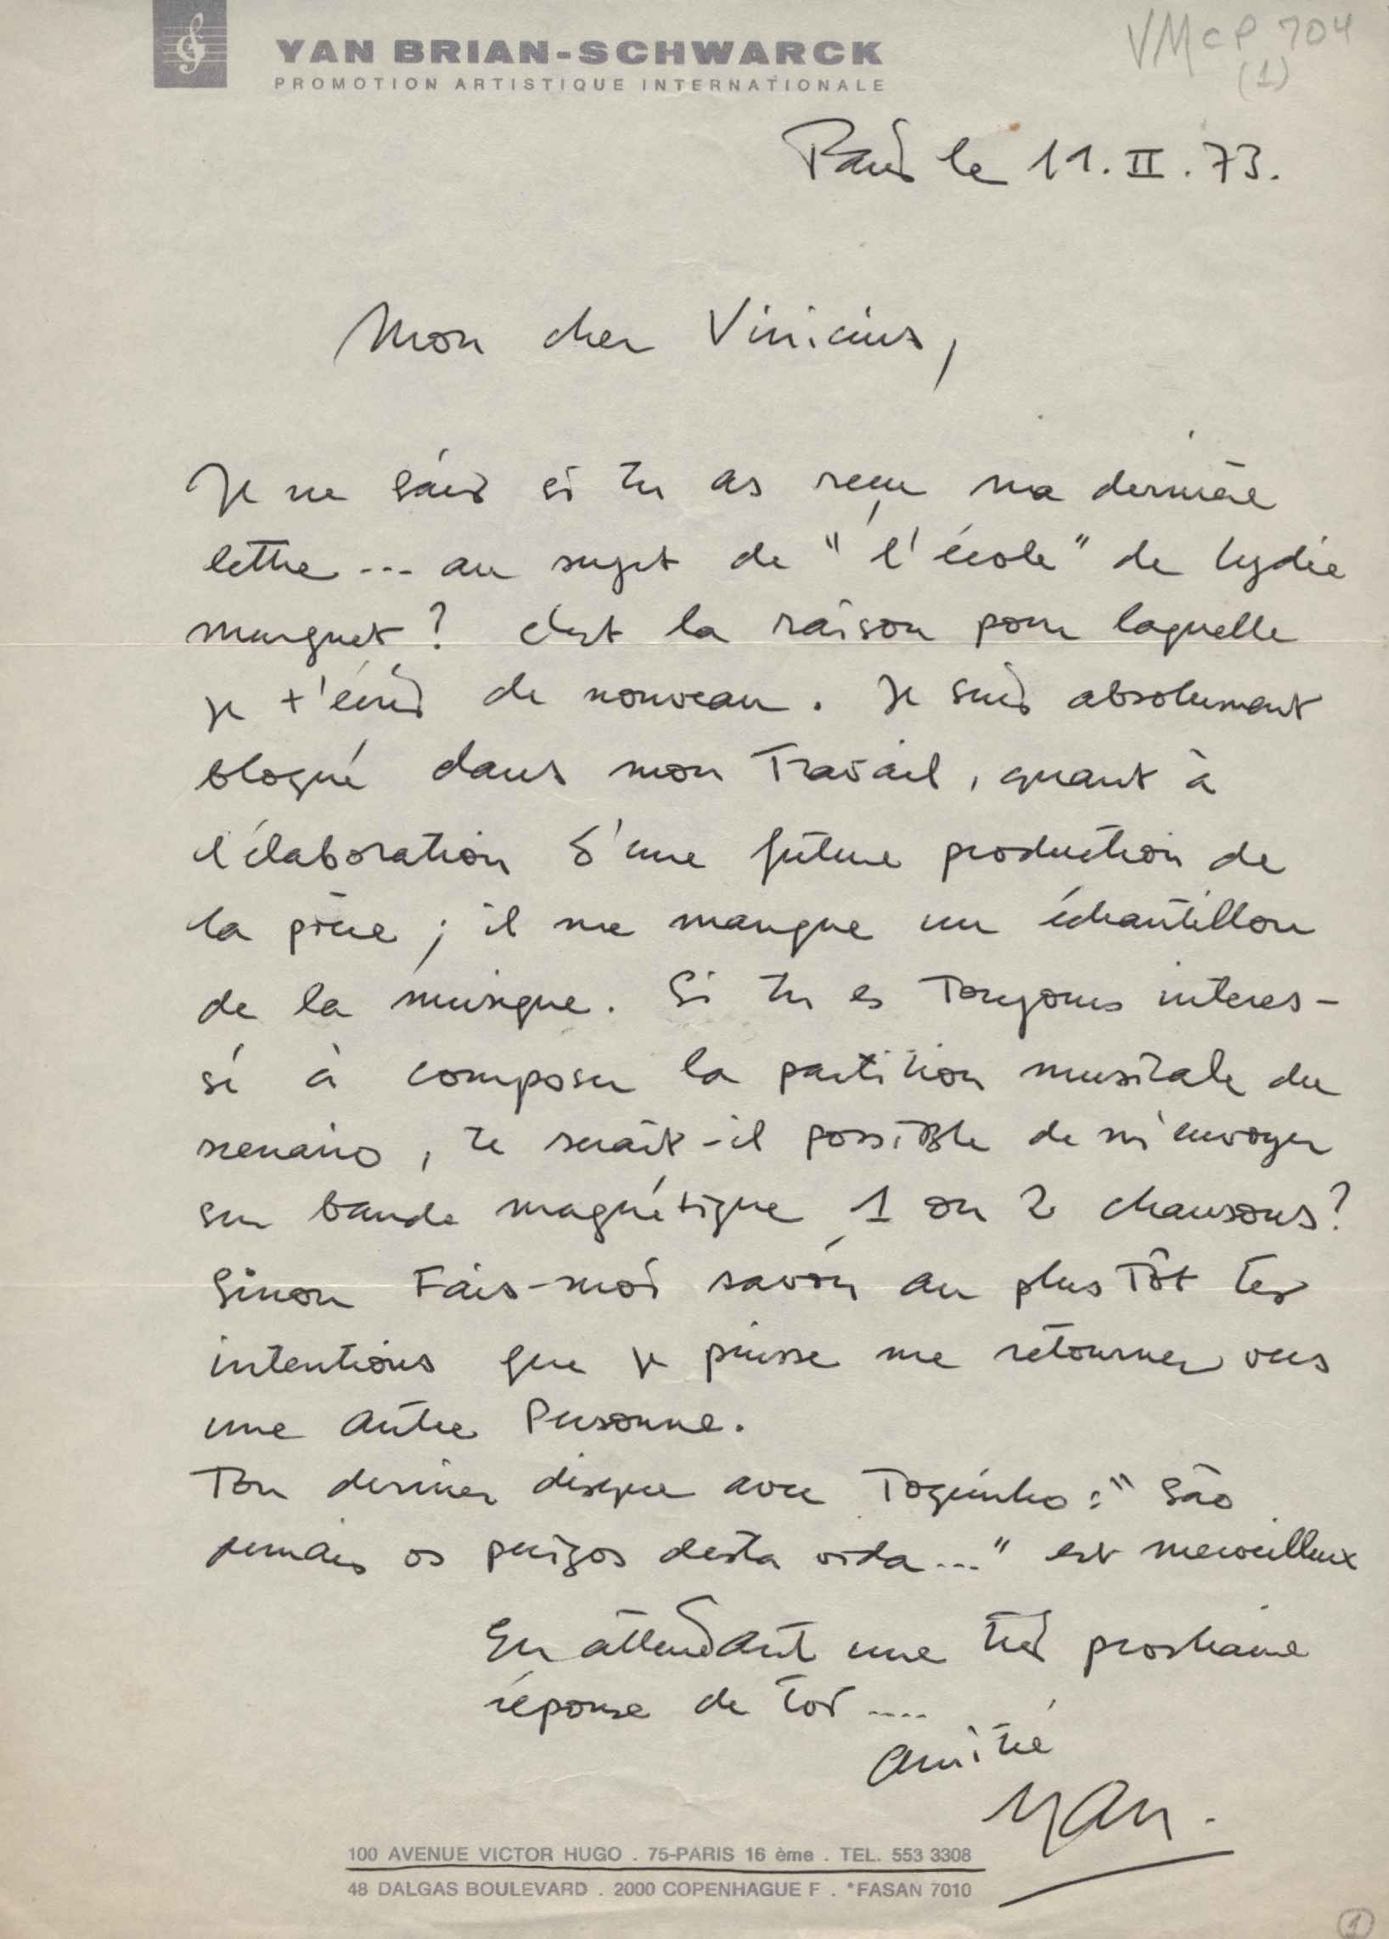 YAN BRIAN-SCHWARCK
PROMOTION ARTISTIQUE INTERNATIONALE
VMcP 704
(1)
Paris le 11.II.73.
Mon cher Vinicius,
Je ne sais si tu as reçu ma dernière
lettre... au sujet de "l'école" de Lydie
murguet? c'est la raison pour laquelle
je t'écris de nouveau. Je suis absolument
bloqué dans mon Travail, quant à
l'élaboration d'une future production de
la pièce; il me manque un échantillon
de la musique. Si tu es Toujours interes-
sé à composer la partition musicale du
scenario, te serait-il possible de m'envoyer
sur bande magnétique 1 ou 2 chansons?
Sinon Fais-moi savoir au plus Tôt tes
intentions que je puisse me retourner vers
une autre Personne.
Ton dernier disque avec Toquinho: "São
demais os perigos desta vida..." est merveilleux
En attendant une très prochaine
réponse de toi ....
amitié
Yan.
100 AVENUE VICTOR HUGO . 75-PARIS 16 ème . TEL. 553 3308
48 DALGAS BOULEVARD . 2000 COPENHAGUE F . *FASAN 7010
1